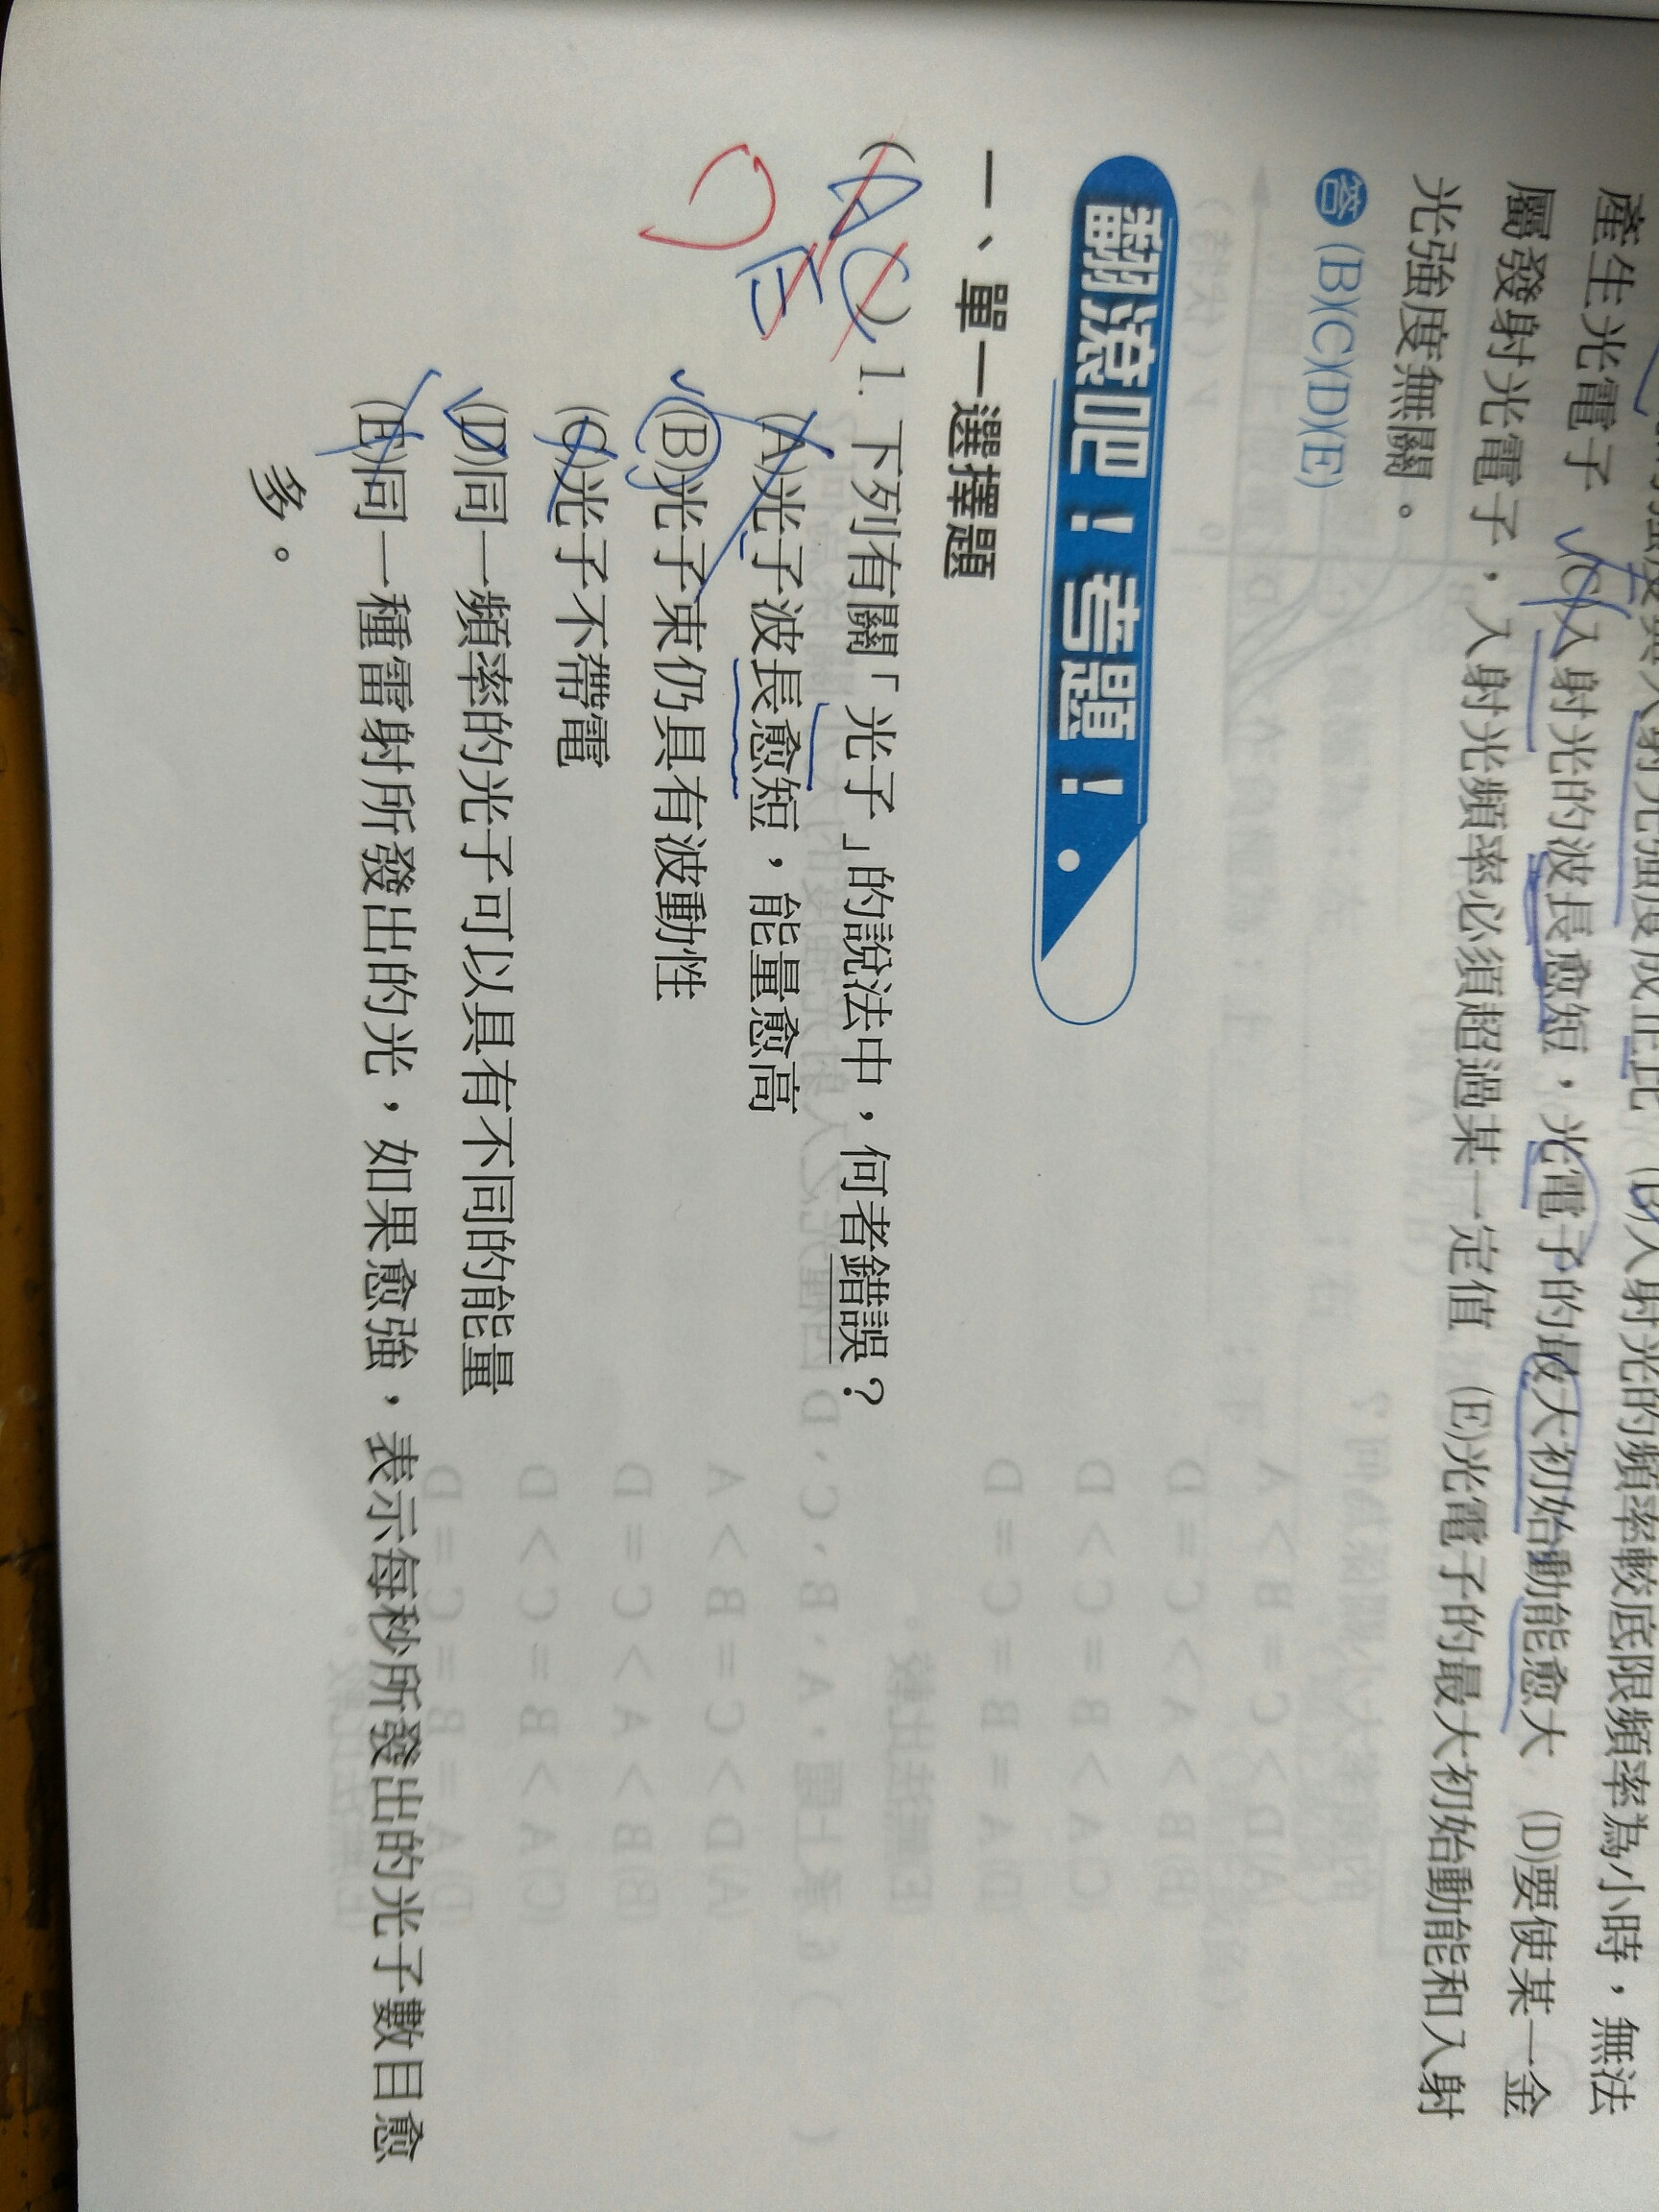 產生光電子 (C)入射光的波長愈短，光電子的最大初始動能愈大 (D)要使某一金
屬發射光電子，入射光頻率必須超過某一定值 (E)光電子的最大初始動能和入射
光強度無關。
答 (B)(C)(D)(E)
翻滾吧！考題！
一、單一選擇題
(AC) 1. 下列有關「光子」的說法中，何者錯誤？
E
(A)光子波長愈短，能量愈高
(B)光子束仍具有波動性
(C)光子不帶電
(D)同一頻率的光子可以具有不同的能量
(E)同一種雷射所發出的光，如果愈強，表示每秒所發出的光子數目愈
多。